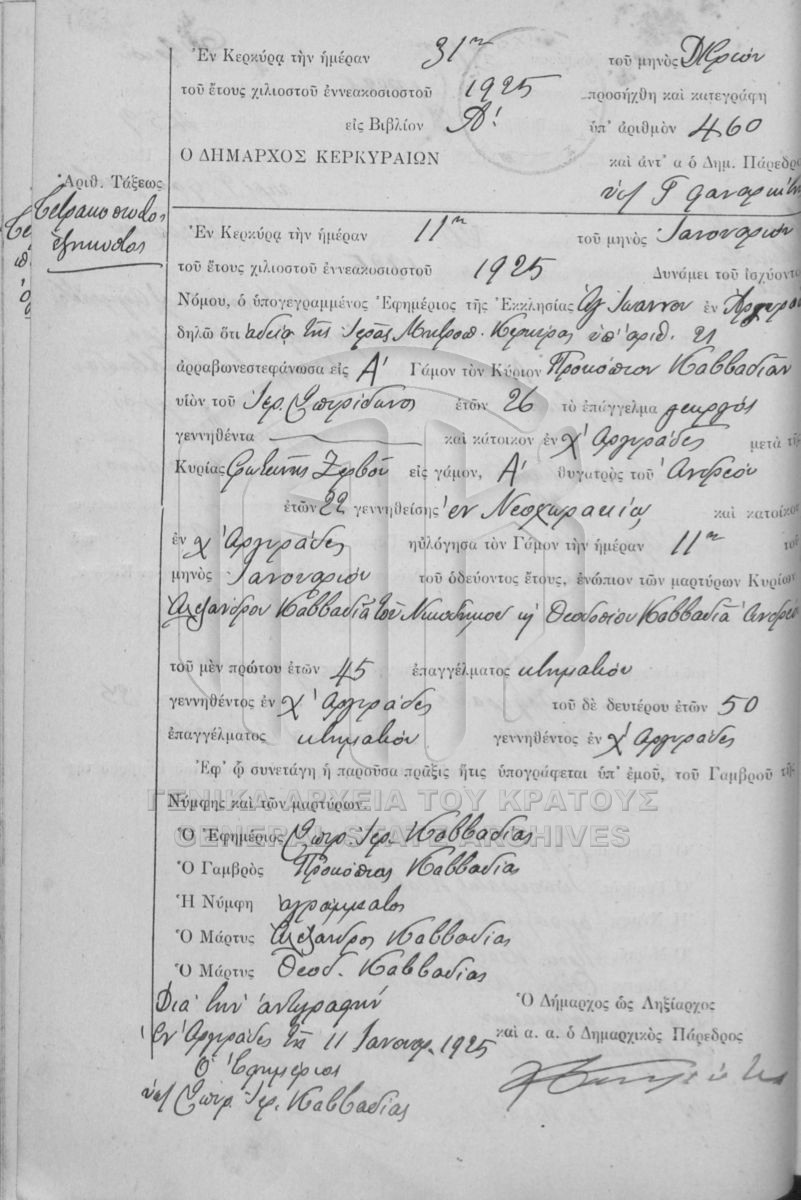 Ἐν Κερκύρᾳ τὴν ἡμέραν 31ην τοῦ μηνὸς Δ/βρίου
τοῦ ἔτους χιλιοστοῦ ἐννεακοσιοστοῦ 1925 προσήχθη καὶ κατεγράφη
εἰς Βιβλίον Α' ὑπ' ἀριθμὸν 460
Ο ΔΗΜΑΡΧΟΣ ΚΕΡΚΥΡΑΙΩΝ καὶ ἀντ' α ὁ Δημ. Πάρεδρ
Ἀριθ. Τάξεως
Τετρακόσιοστος
ἑξηκοστος
Ἐν Κερκύρᾳ τὴν ἡμέραν 11ην τοῦ μηνὸς Ιανουαρίου
τοῦ ἔτους χιλιοστοῦ ἐννεακοσιοστοῦ 1925 Δυνάμει τοῦ ἰσχύοντο
Νόμου, ὁ ὑπογεγραμμένος Ἐφημέριος τῆς Ἐκκλησίας Αγ Ιωαννου ἐν Αργυρα
δηλῶ ὅτι ἀδείᾳ τῆς Ἱερᾶς Μητροπ. Κερκυρας ὑπ' ἀριθ. 21
ἀρραβωνεστεφάνωσα εἰς Α' Γάμον τὸν Κύριον Προκόπιον Καββαδίαν
υἱὸν τοῦ Ἱερ. Σπυρίδωνος ἐτῶν 26 τὸ ἐπάγγελμα γεωργός
γεννηθέντα καὶ κάτοικον ἐν χ' Αργυράδες μετὰ τῆς
Κυρίας Φωτεινῆς Ζερβοῦ εἰς γάμον, Α' θυγατρὸς τοῦ Ἀνδρέου
ἐτῶν 22 γεννηθείσης ἐν Νεοχωρακίῳ καὶ κατοίκου
ἐν χ' Αργυράδες ηὐλόγησα τὸν Γάμον τὴν ἡμέραν 11ην τοῦ
μηνὸς Ιανουαρίου τοῦ ὁδεύοντος ἔτους, ἐνώπιον τῶν μαρτύρων Κυρίων
Αλεξάνδρου Καββαδία τοῦ Νικοδήμου κ Θεοδοσίου Καββαδία Ανδρέ
τοῦ μὲν πρώτου ἐτῶν 45 ἐπαγγέλματος κτηματίου
γεννηθέντος ἐν χ' Αργυράδες τοῦ δὲ δευτέρου ἐτῶν 50
ἐπαγγέλματος κτηματίου γεννηθέντος ἐν χ' Αργυράδες
Ἐφ' ᾧ συνετάγη ἡ παροῦσα πρᾶξις ἥτις ὑπογράφεται ὑπ' ἐμοῦ, τοῦ Γαμβροῦ τῆς
Νύμφης καὶ τῶν μαρτύρων.
ΓΕΝΙΚΑ ΑΡΧΕΙΑ ΤΟΥ ΚΡΑΤΟΥΣ
GENERAL STATE ARCHIVES
Ὁ Ἐφημέριος Σπυρ. Ἱερ. Καββαδίας
Ὁ Γαμβρὸς Προκόπιος Καββαδίας
Ἡ Νύμφη ἀγράμματος
Ὁ Μάρτυς Αλέξανδρος Καββαδίας
Ὁ Μάρτυς Θεοδ. Καββαδίας
Δια την ἀντιγραφήν Ὁ Δήμαρχος ὡς Ληξίαρχος
Εν Αργυράδες τῇ 11 Ιανουαρ. 1925 καὶ α. α. ὁ Δημαρχικὸς Πάρεδρος
Ὁ Ἐφημέριος
Σπυρ. Ἱερ. Καββαδίας